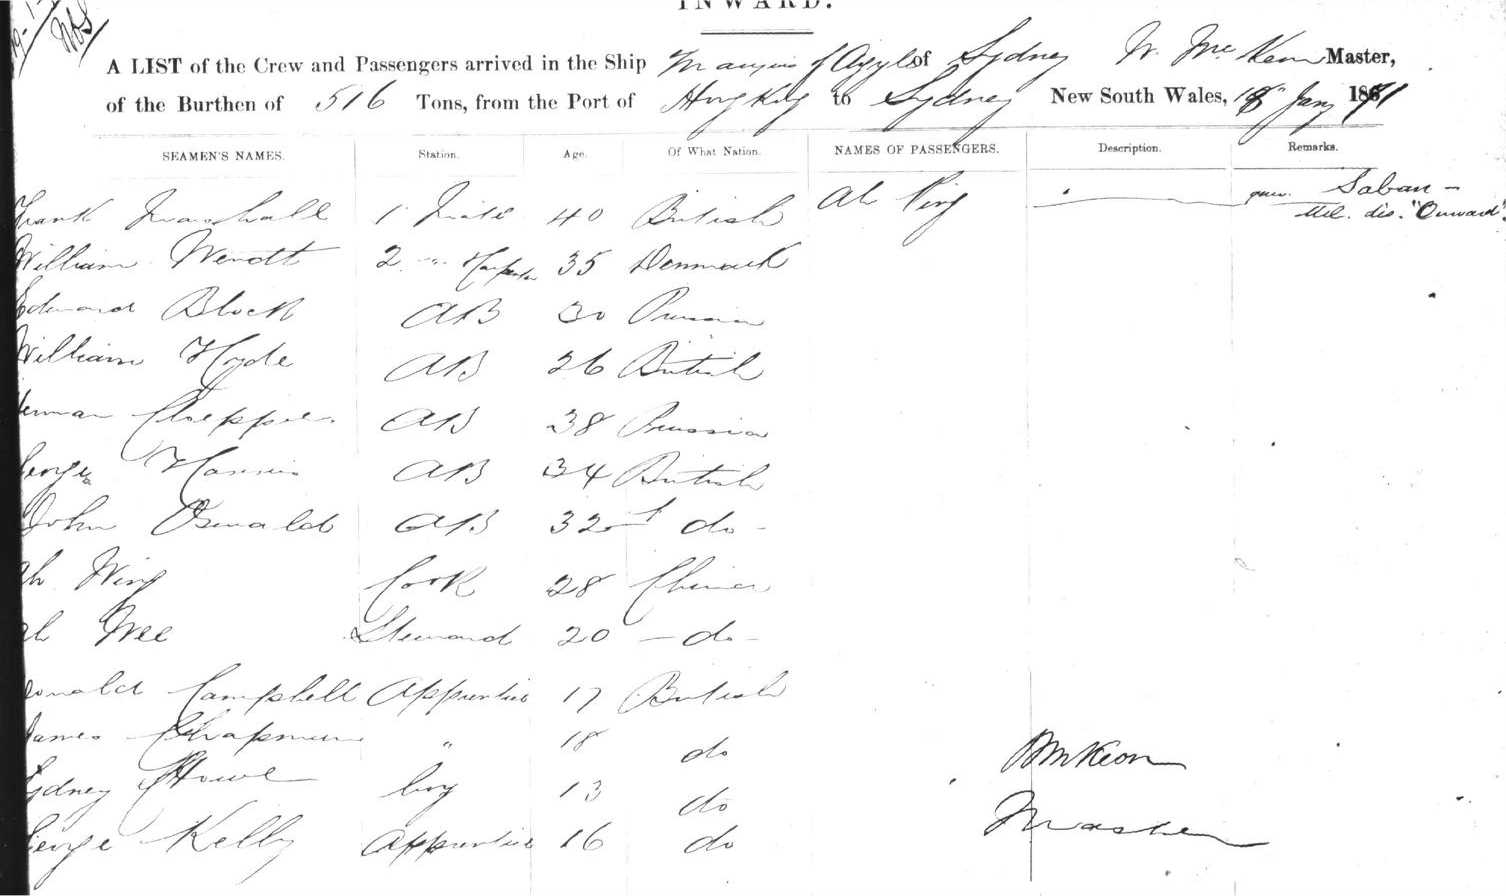 INWARD.
A LIST of the Crew and Passengers arrived in the Ship Marquis of Argyle of Sydney W. McKeon Master,
of the Burthen of 516 Tons, from the Port of Hong Kong to Sydney New South Wales, 18 Jany 1871
SEAMEN'S NAMES. Station. Age. Of What Nation. NAMES OF PASSENGERS. Description. Remarks.
Frank Marshall 1 Mate 40 British Ah Ping
"Onward"
William Wendt 2 " Carpenter 35 Denmark
Edward Block AB 30 Prussia
William Hyde AB 26 British
Herman AB 38 Prussia
George Harris AB 34 British
John Oswald AB 32 do
Ah Wing Cook 28 China
Ah Wee Steward 20 - do -
Donald Campbell Apprentice 17 British
James Chapman " 18 do
Sydney Howe boy 13 do
George Kelly Apprentice 16 do
WMKeon
Master